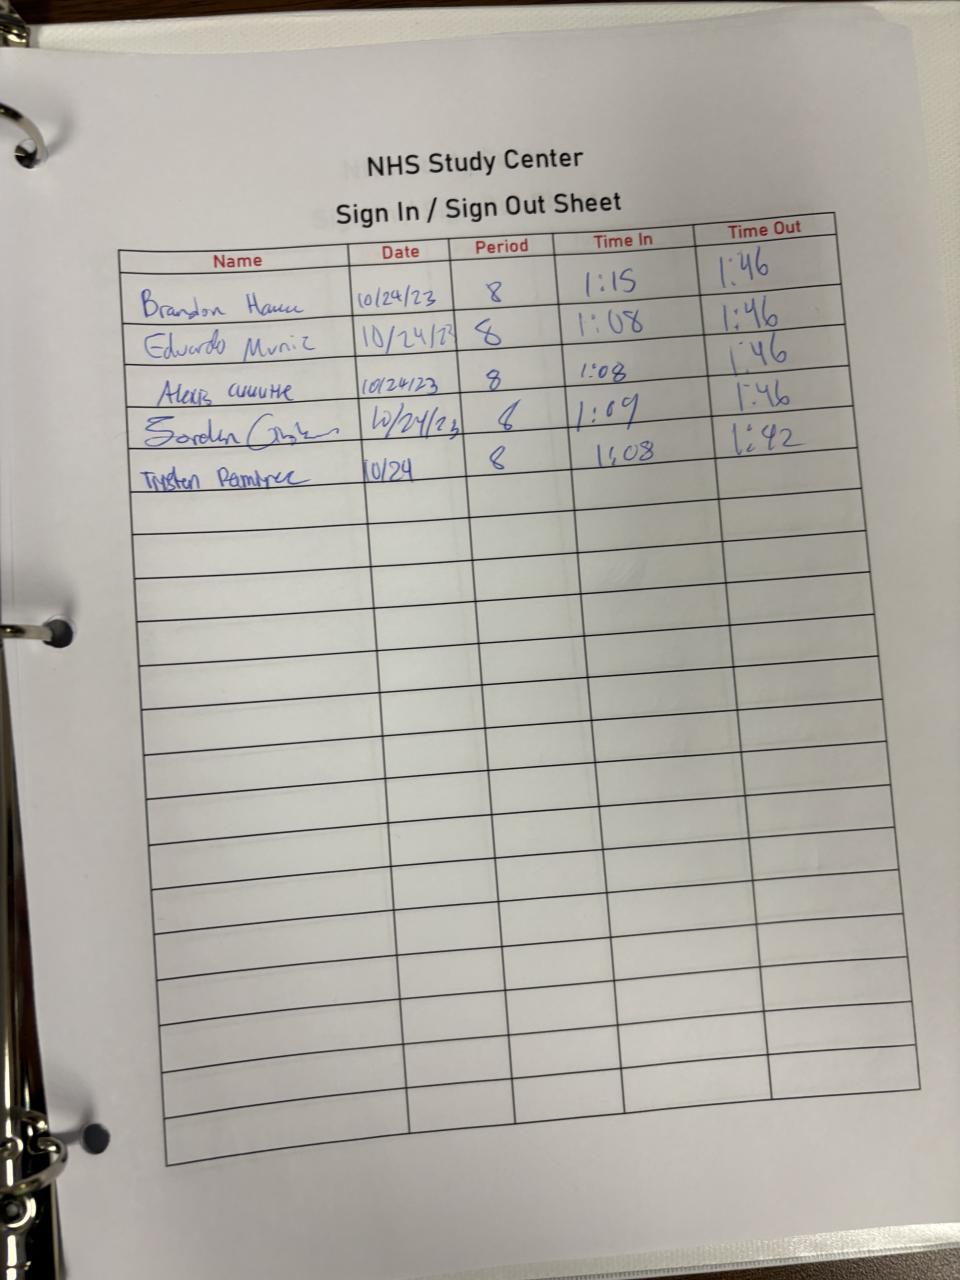 NHS Study Center
Sign In / Sign Out Sheet
Name Date Period Time In Time Out
Brandon 10/24/23 8 1:15 1:46
Eduardo Muniz 10/24/23 8 1:08 1:46
Alexis 10/24/23 8 1:08 1:46
Jorden 10/24/23 8 1:09 1:46
Trysten Ramirez 10/24 8 1:08 1:42